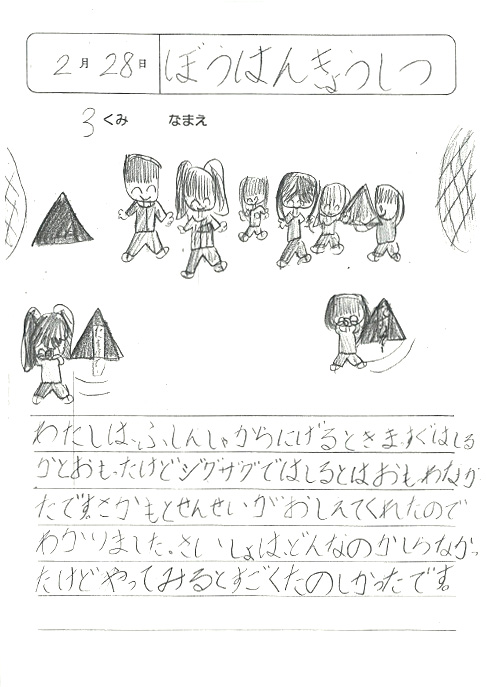 2月28日 ぼうはんきょうしつ
3くみ なまえ
わたしは、ふしんしゃからにげるときます。ぐはしる
かとおもったけどジグザグではしるとはおもわなかっ
たです。さかもとせんせいがおしえてくれたので
わかりました。さいしょは、どんなのかしらなかっ
たけどやってみるとすごくたのしかったです。